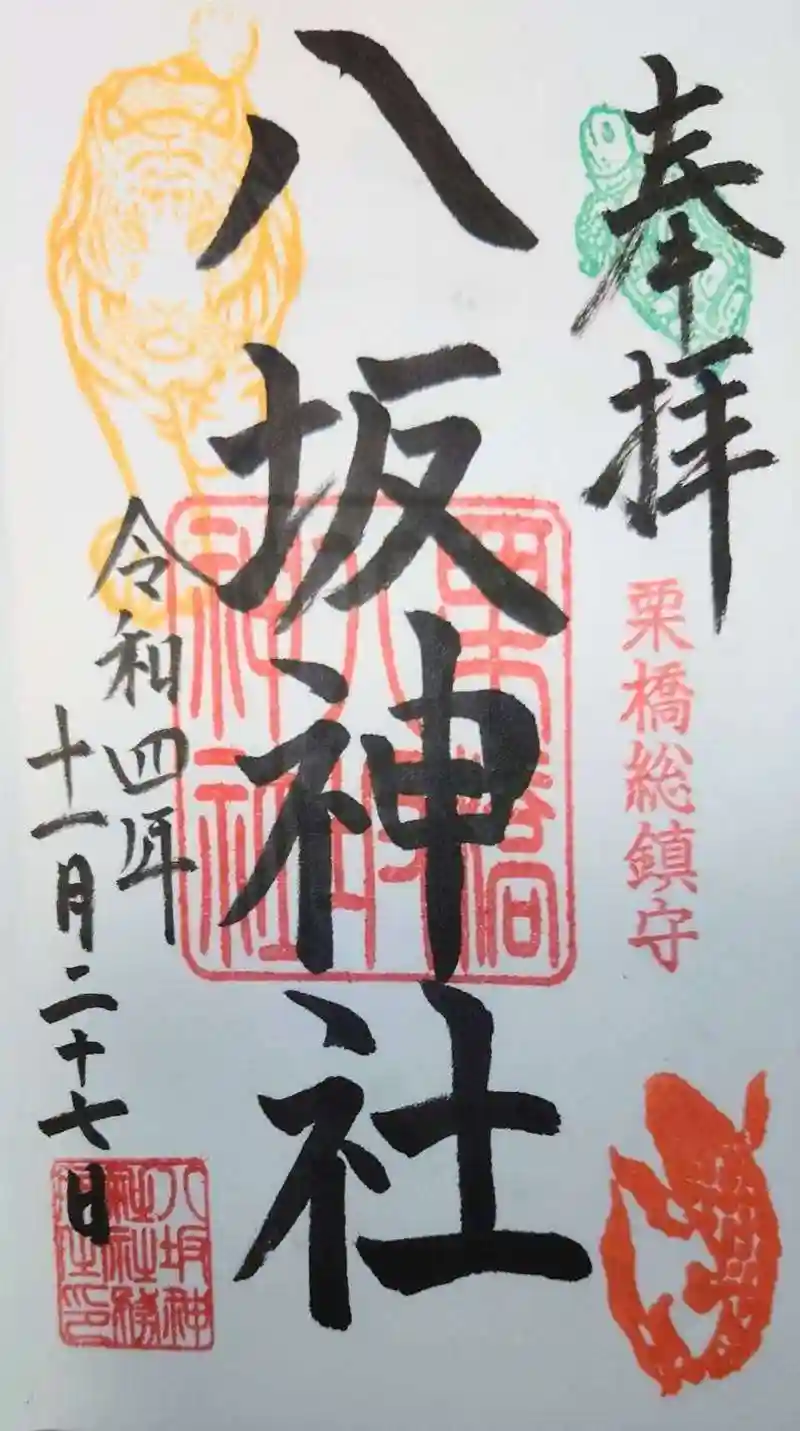 奉拝
栗橋総鎮守
八坂神社
栗橋
八坂
神社
令和四年
十一月二十七日
八坂神